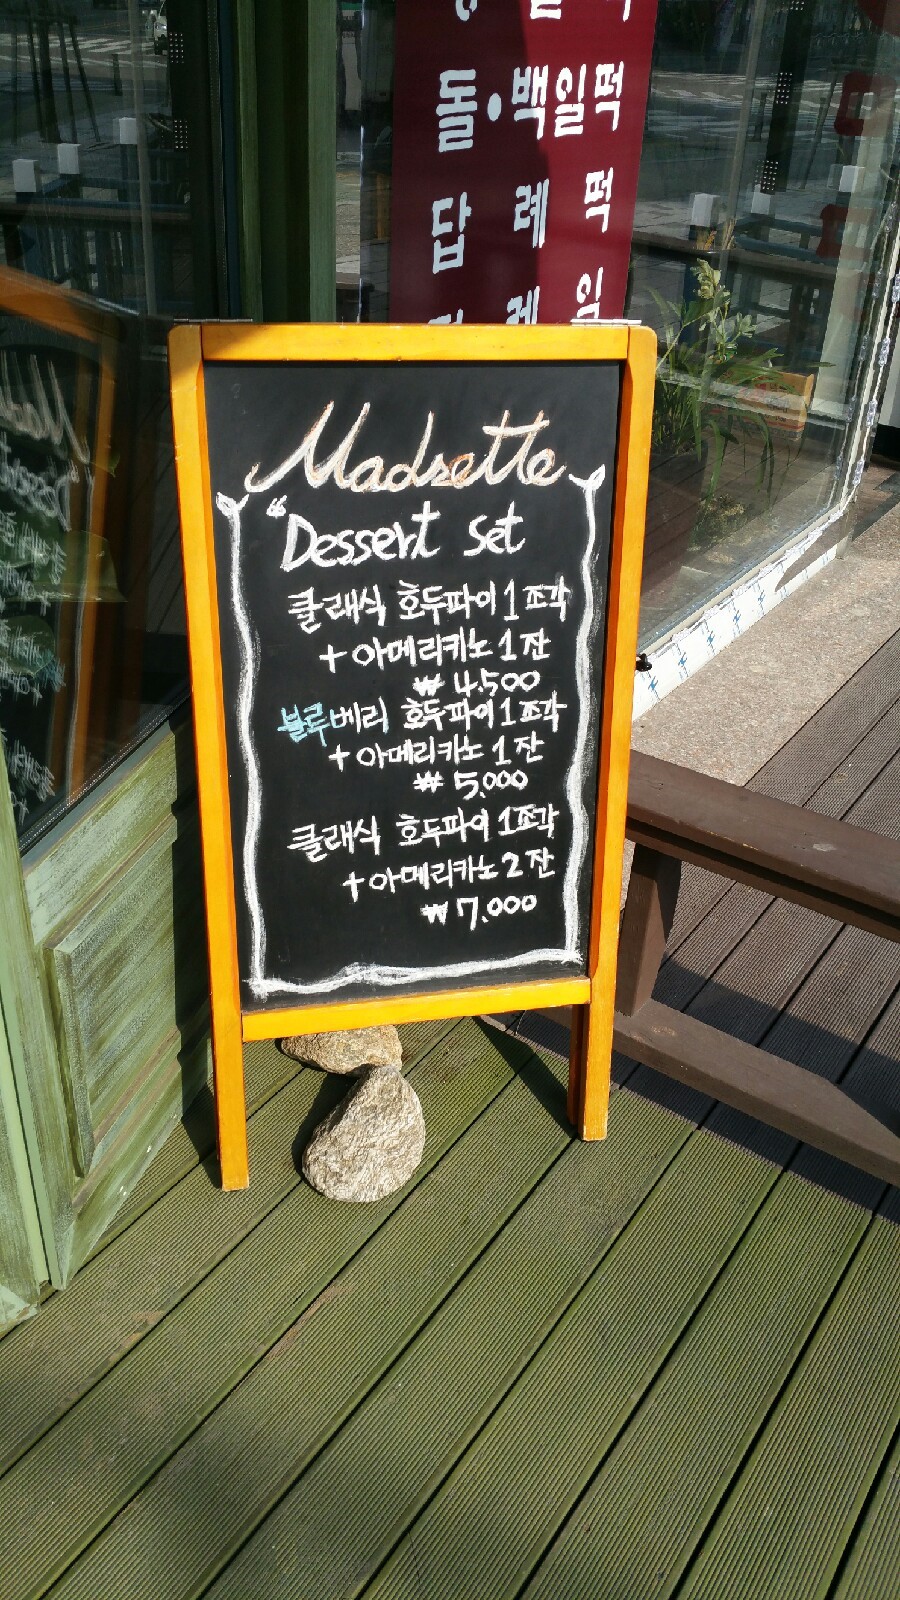 돌·백일떡
답례떡
Madsette
"Dessert set
클래식 호두파이 1조각
+ 아메리카노 1잔
₩ 4.500
블루베리 호두파이 1조각
+ 아메리카노 1잔
₩ 5.000
클래식 호두파이 1조각
+ 아메리카노 2잔
₩ 7.000